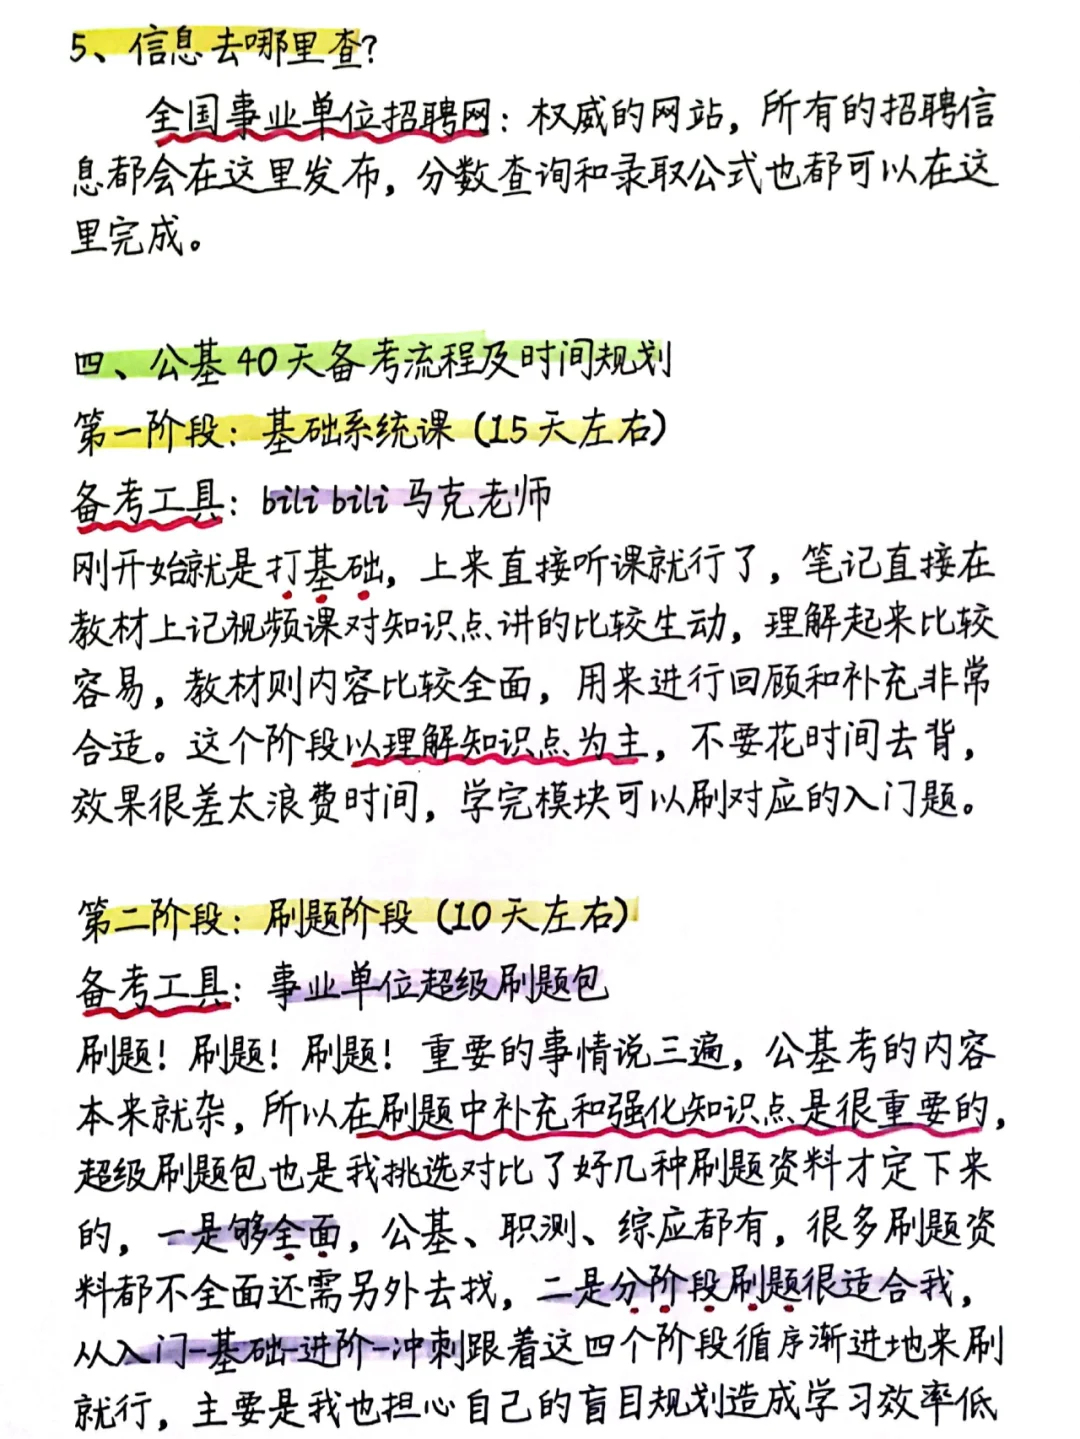 5、信息去哪里查?
全国事业单位招聘网：权威的网站，所有的招聘信
息都会在这里发布，分数查询和录取公式也都可以在这
里完成。
四、公基40天备考流程及时间规划
第一阶段：基础系统课（15天左右）
备考工具：bilibili马克老师
刚开始就是打基础，上来直接听课就行了，笔记直接在
教材上记视频课对知识点讲的比较生动，理解起来比较
容易，教材则内容比较全面，用来进行回顾和补充非常
合适。这个阶段以理解知识点为主，不要花时间去背，
效果很差太浪费时间，学完模块可以刷对应的入门题。
第二阶段：刷题阶段（10天左右）
备考工具：事业单位超级刷题包
刷题！刷题！刷题！重要的事情说三遍，公基考的内容
本来就杂，所以在刷题中补充和强化知识点是很重要的，
超级刷题包也是我挑选对比了好几种刷题资料才定下来
的，一是够全面，公基、职测、综应都有，很多刷题资
料都不全面还需另外去找，二是分阶段刷题很适合我，
从入门-基础-进阶-冲刺跟着这四个阶段循序渐进地来刷
就行，主要是我也担心自己的盲目规划造成学习效率低